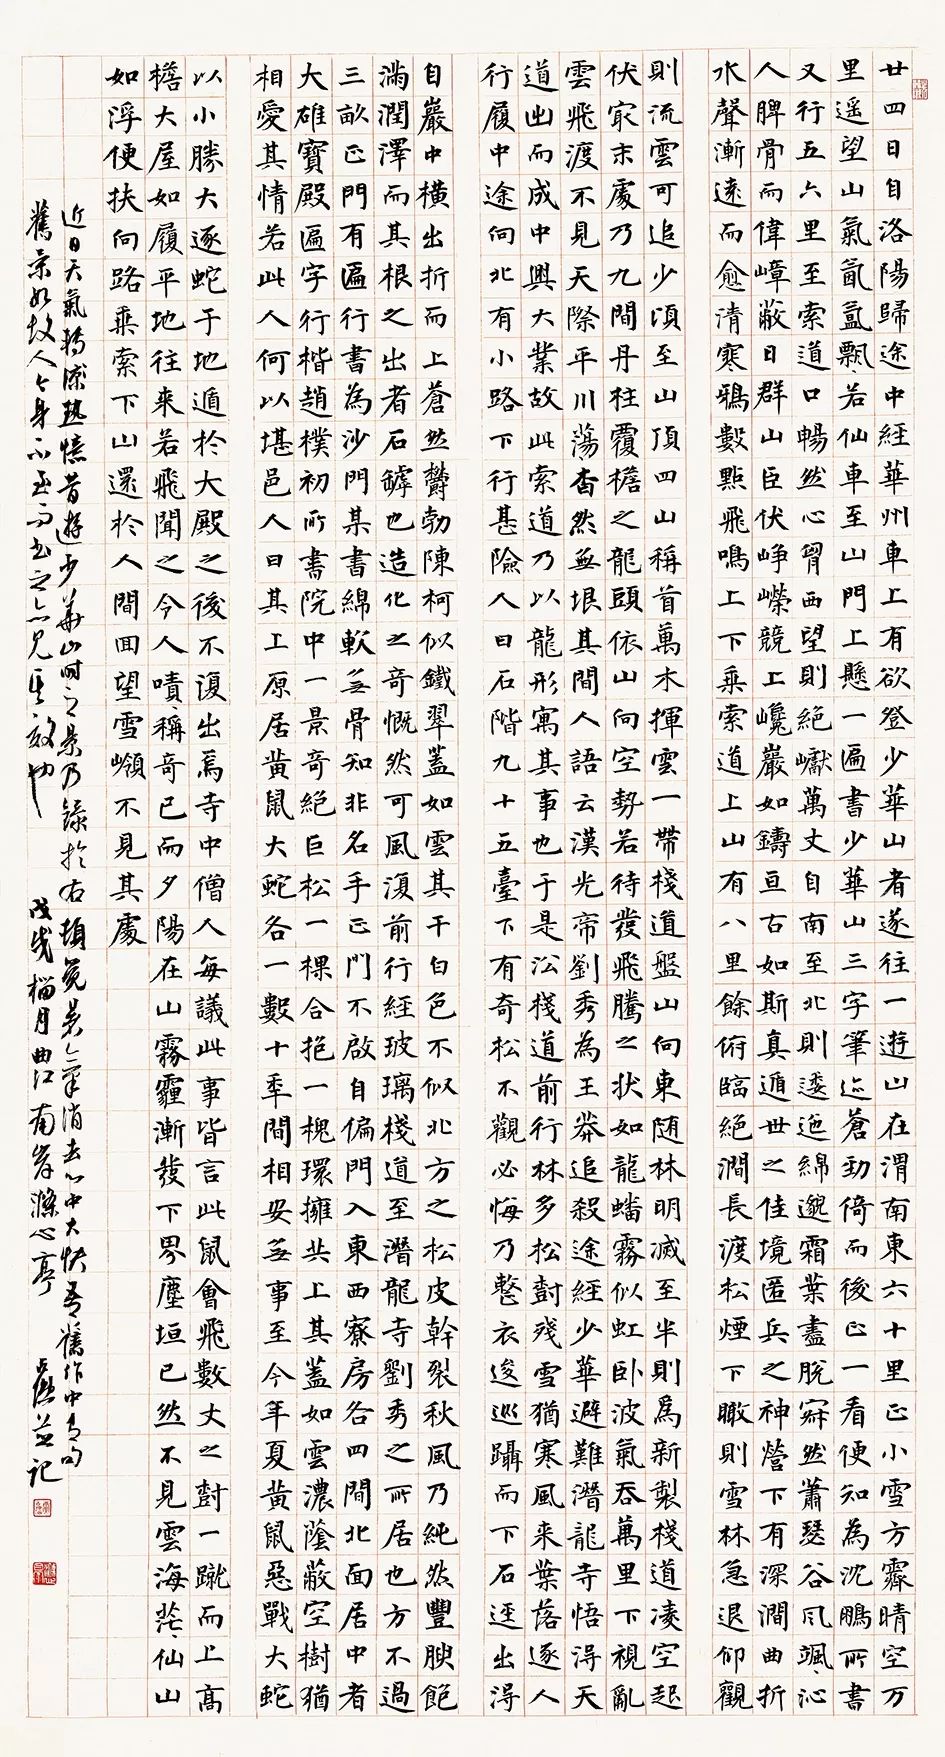 廿四日自洛陽歸途中經華州車上有欲登少華山者遂往一遊山在渭南東六十里正小雪方霽晴空万
里遥望山氣氤氳飄、若仙車至山門上懸一匾書少華山三字筆迹蒼勁倚而後正一看便知為沈鵬所書
又行五六里至索道口暢然心胷西望則絕巘萬丈自南至北則逶迤綿邈霜葉盡脫寂然蕭瑟谷風颯、沁
人脾骨而偉嶂蔽日群山臣伏崢嶸競上巉巖如鑄亘古如斯真遁世之佳境匿兵之神營下有深澗曲折
水聲漸遠而愈清寒鴉數點飛鳴上下乘索道上山有八里餘俯臨絕澗長渡松煙下瞰則雪林急退仰觀
則流雲可追少湏至山頂四山稱首萬木揮雲一帶棧道盤山向東随林明滅至半則爲新製棧道凌空起
伏㝡末處乃九間丹柱覆檐之龍頭依山向空勢若待發飛騰之狀如龍蟠霧似虹卧波氣吞萬里下視亂
雲飛渡不見天際平川蕩、杳然無垠其間人語云漢光帝劉秀為王莽追殺途經少華避難潛龍寺悟得天
道出而成中興大業故此索道乃以龍形寓其事也于是沿棧道前行林多松對殘雪猶寒風来葉落逐人
行履中途向北有小路下行甚險人曰石階九十五臺下有奇松不觀必悔乃整衣逡巡躡而下石逕出得
自巖中橫出折而上蒼然欝勃陳柯似鐵翠蓋如雲其干白色不似北方之松皮幹裂秋風乃純然豐腴飽
滿潤澤而其根之出者石罅也造化之奇慨然可風復前行經玻璃棧道至潛龍寺劉秀之所居也方不過
三畝正門有匾行書為沙門某書綿軟無骨知非名手正門不啟自偏門入東西寮房各四間北面居中者
大雄寶殿匾字行楷趙樸初所書院中一景奇絕巨松一棵合抱一槐環擁共上其蓋如雲濃蔭蔽空樹猶
相愛其情若此人何以堪邑人曰其上原居黄鼠大蛇各一數十年間相安無事至今年夏黄鼠惡戰大蛇
以小勝大逐蛇于地遁於大殿之後不復出焉寺中僧人每議此事皆言此鼠會飛數丈之對一蹴而上高
檐大屋如履平地往来若飛聞之令人嘖、稱奇已而夕陽在山霧靄漸發下界塵垣已然不見雲海茫、仙山
如浮便扶向路乘索下山還於人間回望雪嶺不見其處
近日天氣轉添熱憶昔遊少華山時之景乃錄於右頓覺暑氣消去心中大快吾舊作中有句
舊景如故人今身不至而書之亦見其效也 戊戌榴月曲江南岸滌心亭 並記